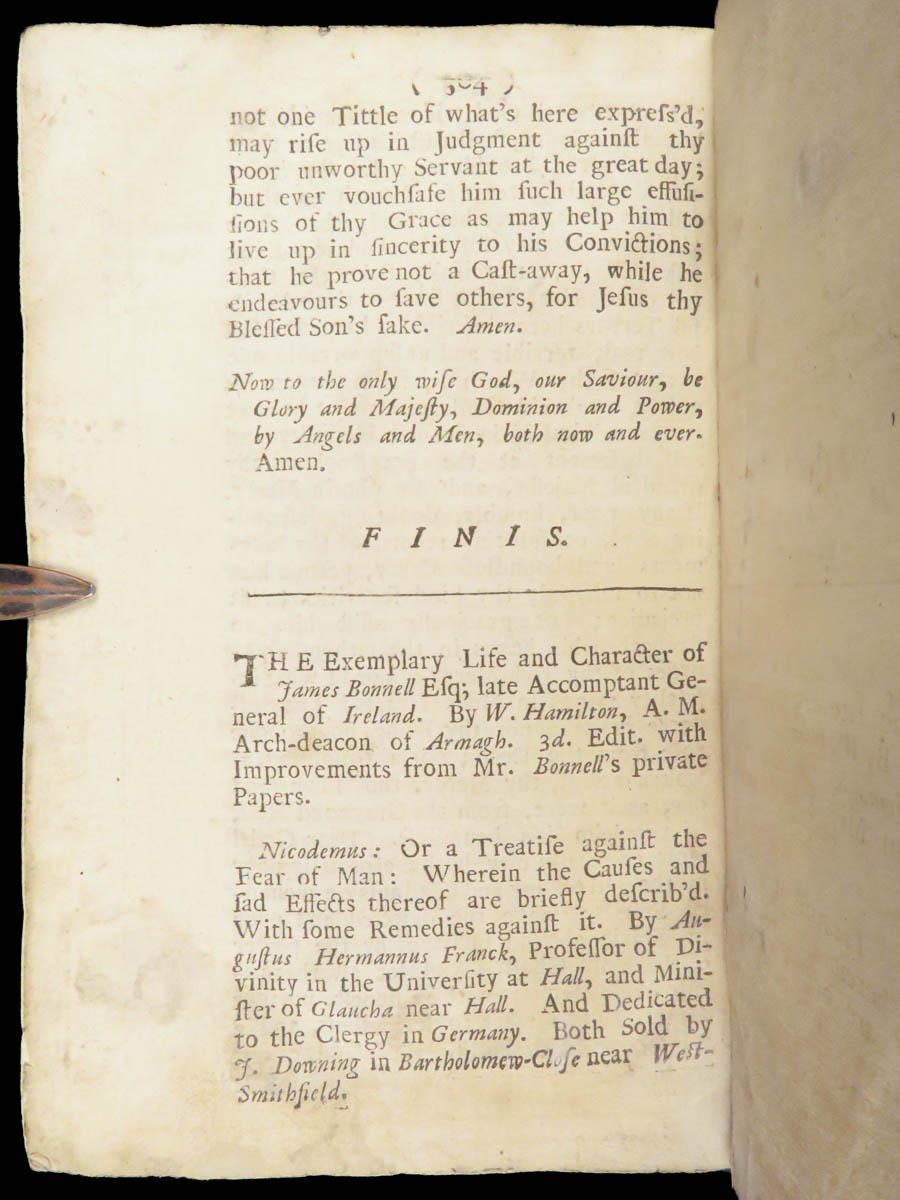 ( 304 )
not one Tittle of what's here expreſs'd,
may riſe up in Judgment againſt thy
poor unworthy Servant at the great day;
but ever vouchſafe him ſuch large effuſi-
ſions of thy Grace as may help him to
live up in ſincerity to his Convictions;
that he prove not a Caſt-away, while he
endeavours to ſave others, for Jeſus thy
Bleſſed Son's ſake. Amen.
Now to the only wiſe God, our Saviour, be
Glory and Majeſty, Dominion and Power,
by Angels and Men, both now and ever.
Amen.
F I N I S.
THE Exemplary Life and Character of
James Bonnell Eſq; late Accomptant Ge-
neral of Ireland. By W. Hamilton, A. M.
Arch-deacon of Armagh. 3d. Edit. with
Improvements from Mr. Bonnell's private
Papers.
Nicodemus: Or a Treatiſe againſt the
Fear of Man: Wherein the Cauſes and
ſad Effects thereof are briefly deſcrib'd.
With ſome Remedies againſt it. By Au-
guſtus Hermannus Franck, Profeſſor of Di-
vinity in the Univerſity at Hall, and Mini-
ſter of Glaucha near Hall. And Dedicated
to the Clergy in Germany. Both Sold by
J. Downing in Bartholomew-Cloſe near Weſt-
Smithfield.